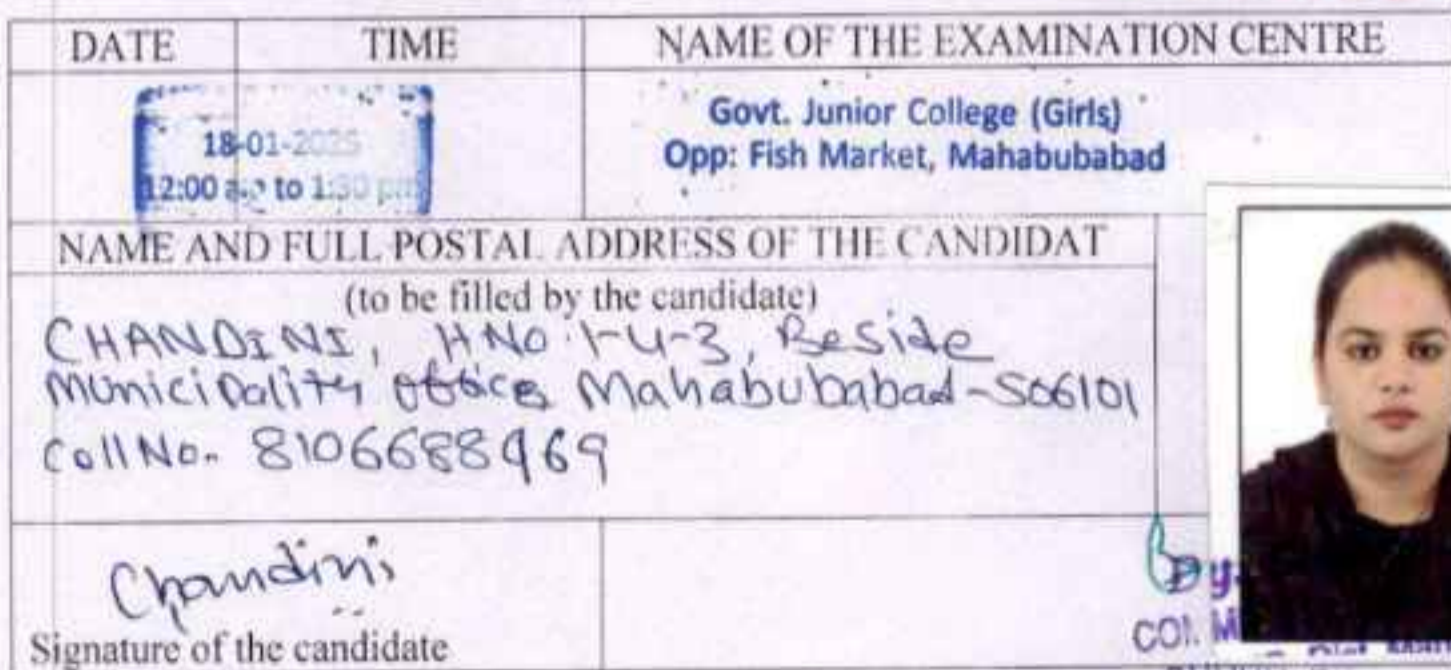 DATE TIME NAME OF THE EXAMINATION CENTRE
18-01-2025
12:00 to 1:30 pm
Govt. Junior College (Girls)
Opp: Fish Market, Mahabubabad
NAME AND FULL POSTAL ADDRESS OF THE CANDIDAT
(to be filled by the candidate)
CHANDINI, HNO 1-4-3, Beside
Municipality office Mahabubabad-506101
Cell No. 8106688969
Chandini
Signature of the candidate